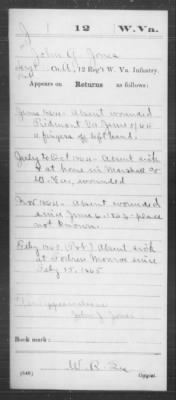 J | 12 | W. Va.
John G. Jones
Sergt, Co. H, 12 Reg't W. Va. Infantry.
Appears on Returns as follows:
June 1864 - Absent wounded
Piedmont Va June 5/64
fingers of left hand.
July to Oct 1864 - Absent sick
at home in Marshall Co
W. Va., wounded
Nov 1864 - Absent wounded
since June 5, 1864 - place
not known.
Feby 1865 Absent sick
at Fortress Monroe since
Feby 15, 1865
John J. Jones
Book mark:
(546)
Copyist.